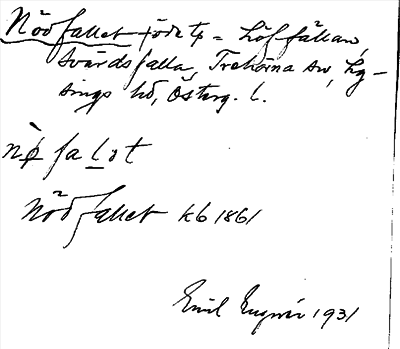 Nödfallet föret = Löffällan,
Svärdsfalla, Trehörna sn, Ly-
sings hd, Österg. l.
nø̀ falot
Nödfallet kb 1861
Emil 1931